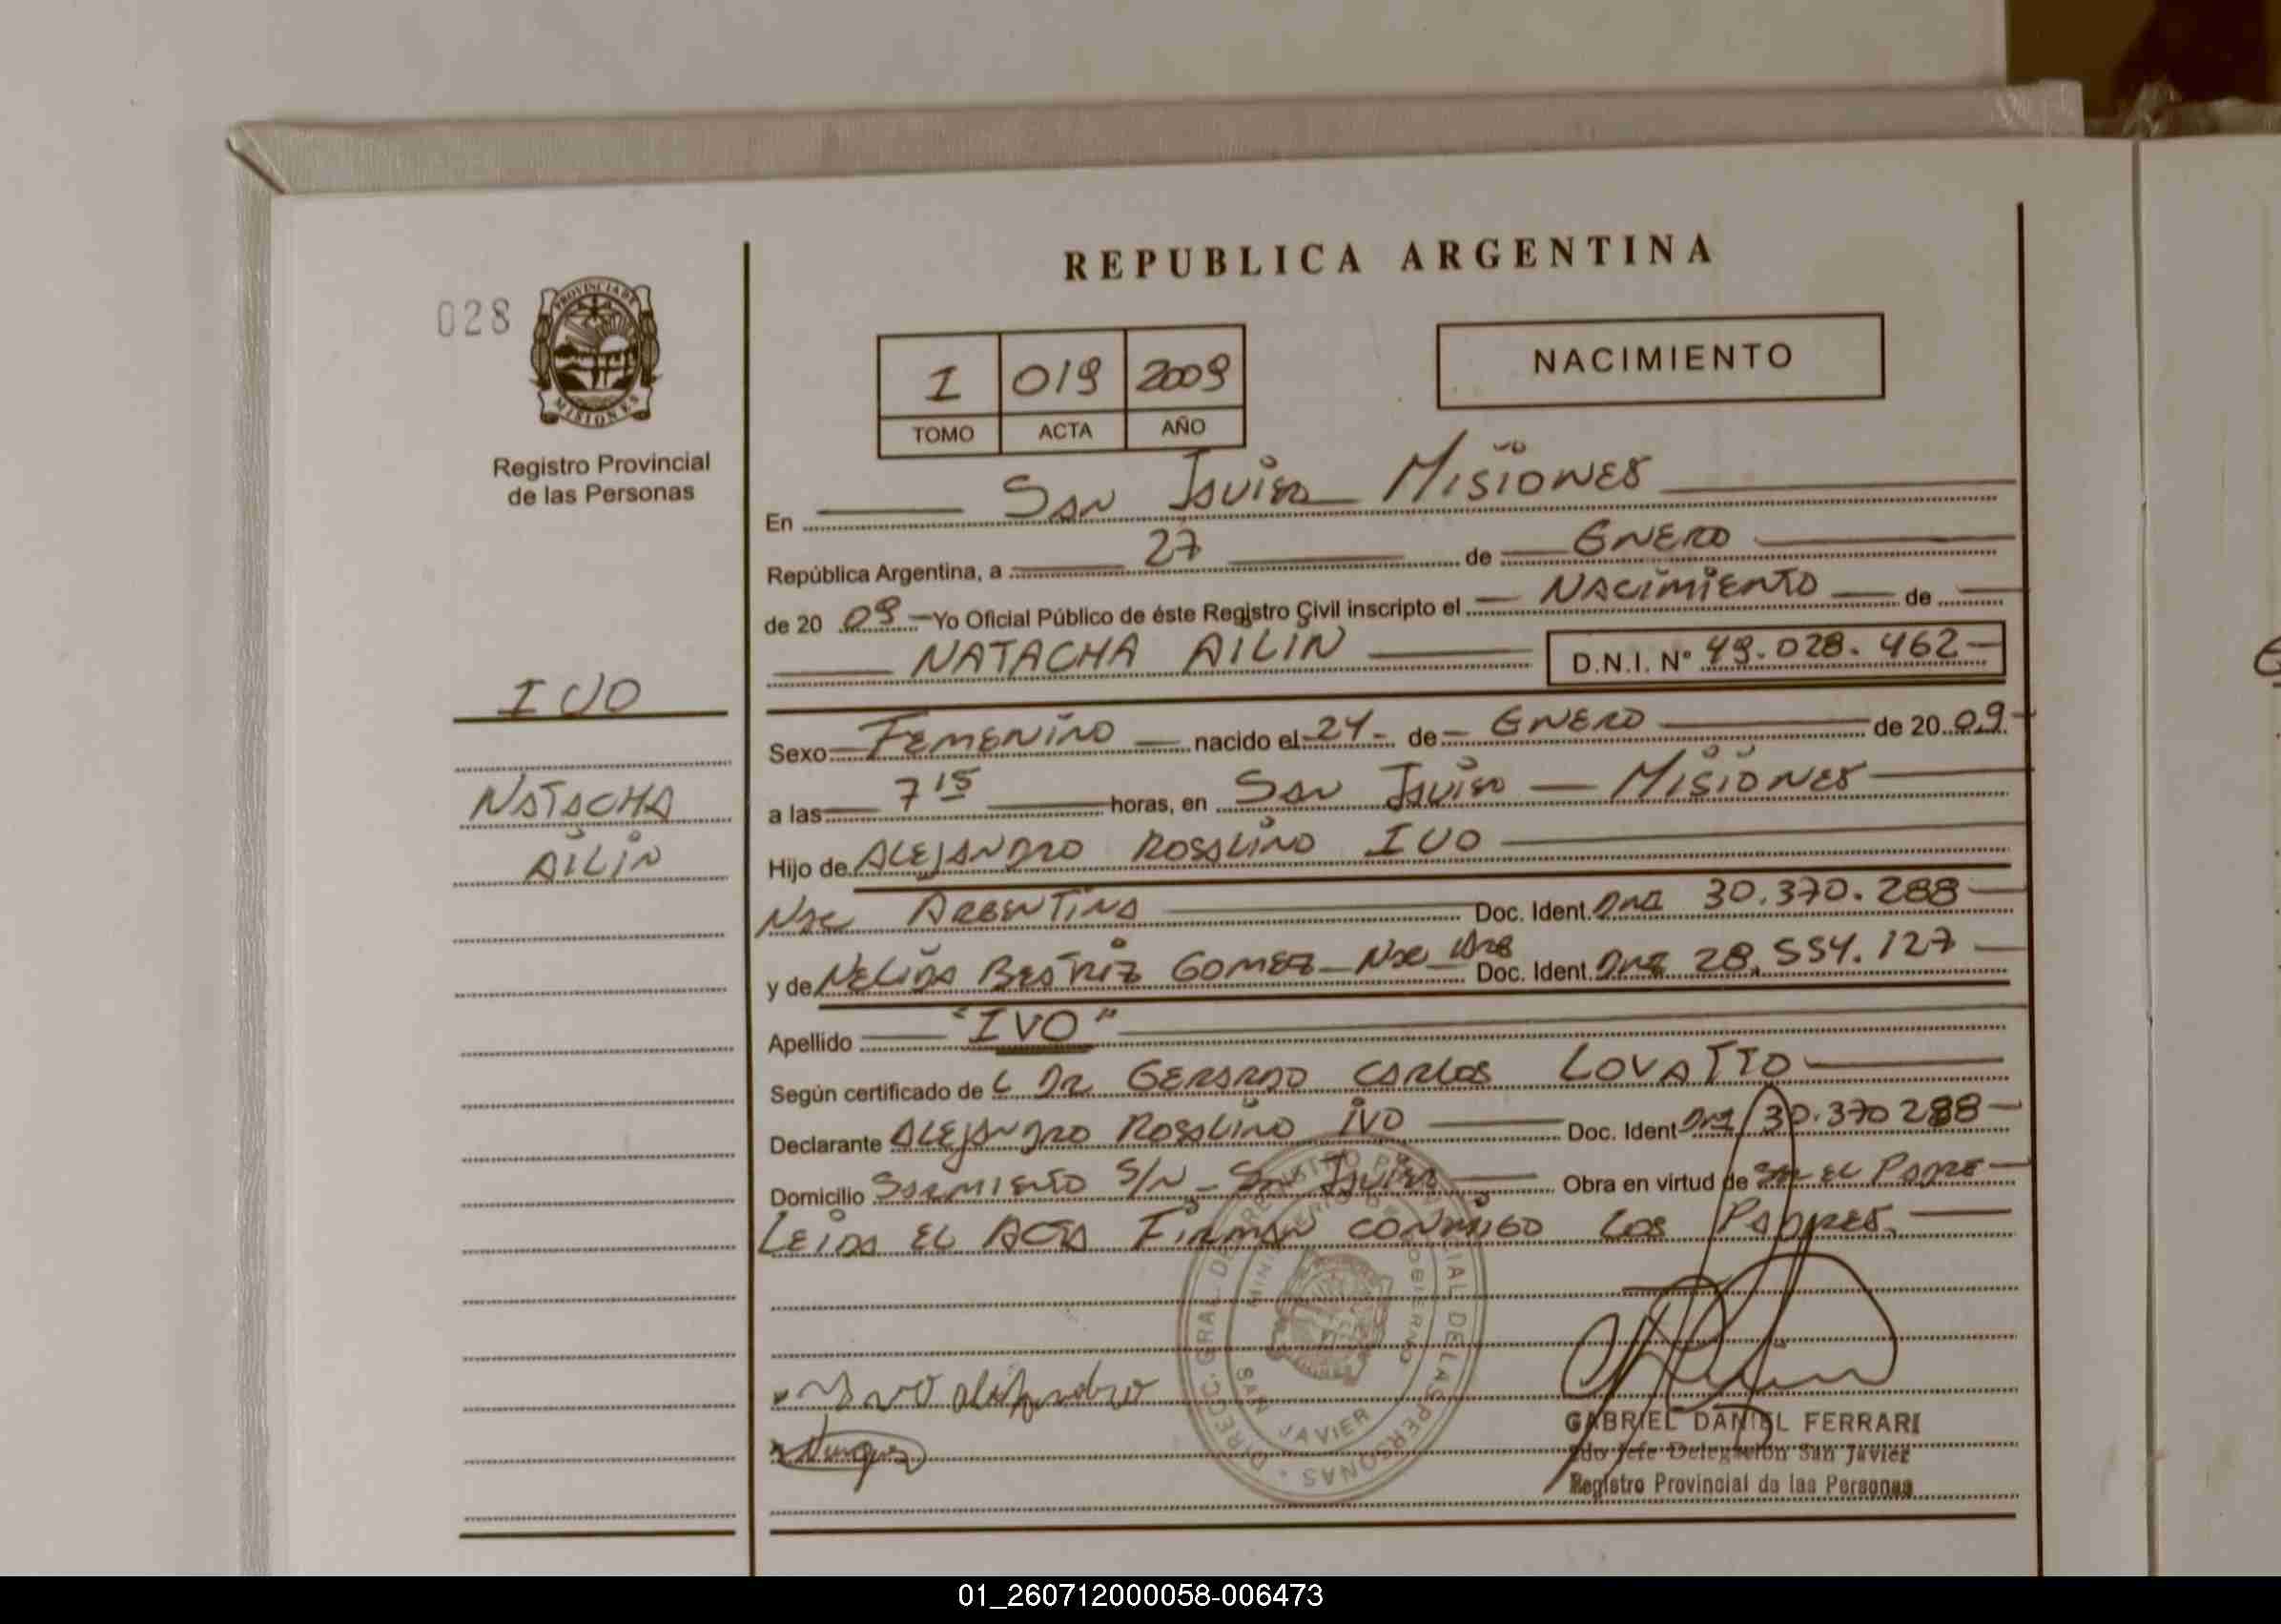 REPUBLICA ARGENTINA
028
PROVINCIA DE
MISIONES
Registro Provincial
de las Personas
NACIMIENTO
I 019 2009
TOMO ACTA AÑO
En San Javier Misiones
República Argentina, a 27 de Enero
de 20 09 Yo Oficial Público de éste Registro Civil inscripto el Nacimiento de
NATACHA AILIN D.N.I. Nº 49.028.462
IVO
Sexo Femenino nacido el 24 de Enero de 20 09
NATACHA
a las 7 15 horas, en San Javier - Misiones
AILIN
Hijo de Alejandro Rosalino IVO
Nac Argentina Doc. Ident. DNI 30.370.288
y de Nelida Beatriz Gomez - Nac Arg Doc. Ident. DNI 28.554.127
Apellido "IVO"
Según certificado de L Dr Gerardo Carlos LOVATTO
Declarante Alejandro Rosalino IVO Doc. Ident DNI 30.370288
Domicilio Sarmiento S/N - San Javier Obra en virtud de Ser el Padre
Leida el Acta Firman conmigo los Padres.
DIRECC. GRAL. DEL REGISTRO PROVINCIAL DE LAS PERSONAS
MINISTERIO DE GOBIERNO
SAN JAVIER
Ivo alejandro
GABRIEL DANIEL FERRARI
2do Jefe Delegación San Javier
Registro Provincial de las Personas
01_260712000058-006473